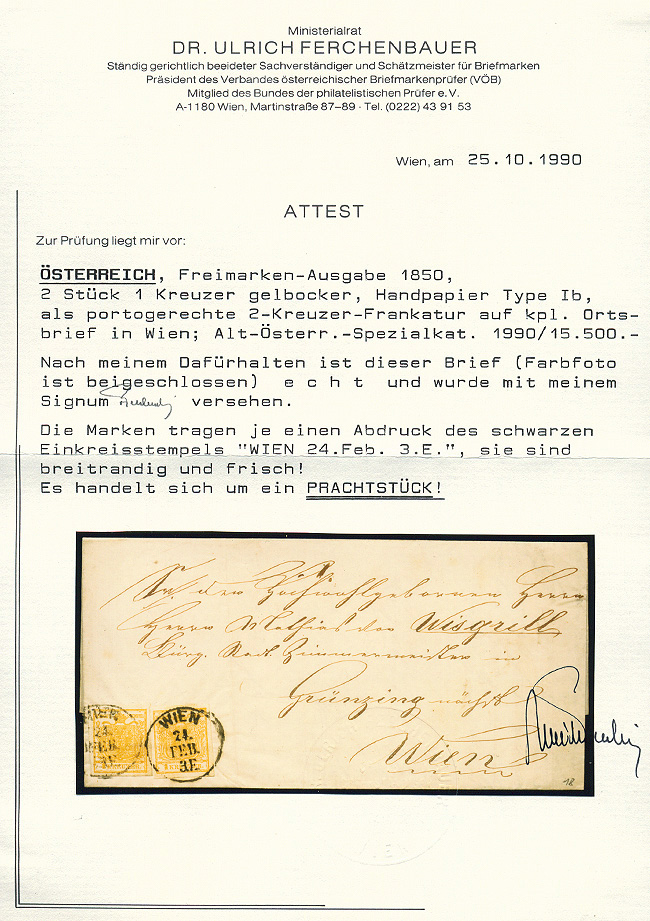 Ministerialrat
DR. ULRICH FERCHENBAUER
Ständig gerichtlich beeideter Sachverständiger und Schätzmeister für Briefmarken
Präsident des Verbandes österreichischer Briefmarkenprüfer (VÖB)
Mitglied des Bundes der philatelistischen Prüfer e. V.
A-1180 Wien, Martinstraße 87–89 · Tel. (0222) 43 91 53
Wien, am 25.10.1990
ATTEST
Zur Prüfung liegt mir vor:
ÖSTERREICH, Freimarken-Ausgabe 1850,
2 Stück 1 Kreuzer gelbocker, Handpapier Type Ib,
als portogerechte 2-Kreuzer-Frankatur auf kpl. Orts-
brief in Wien; Alt-Österr.-Spezialkat. 1990/15.500.-
Nach meinem Dafürhalten ist dieser Brief (Farbfoto
ist beigeschlossen) e c h t und wurde mit meinem
Signum versehen.
Die Marken tragen je einen Abdruck des schwarzen
Einkreisstempels "WIEN 24.Feb. 3.E.", sie sind
breitrandig und frisch!
Es handelt sich um ein PRACHTSTÜCK!
Sr. den Hochwohlgebornen Herrn
Herrn Mathias von Wisgrill
Bürg. Stadt Zimmermeister in
Grünzing nächst
Wien
WIEN
24.
FEB.
3.E.
WIEN
24.
FEB.
3.E.
18